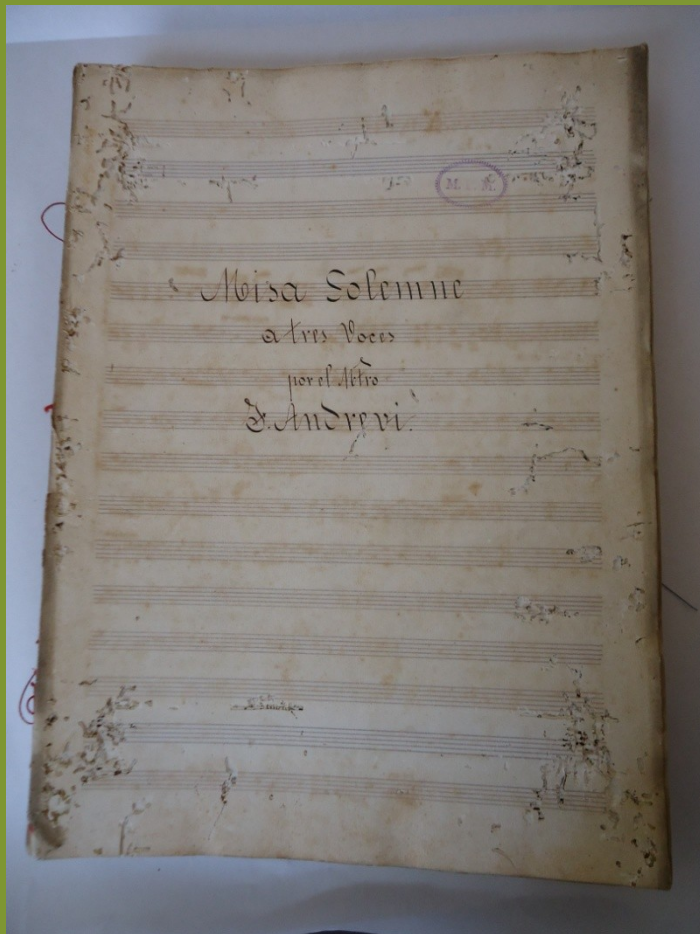 M. M.
Misa Solemne
a tres Voces
por el Mtro
F. Andrevi.